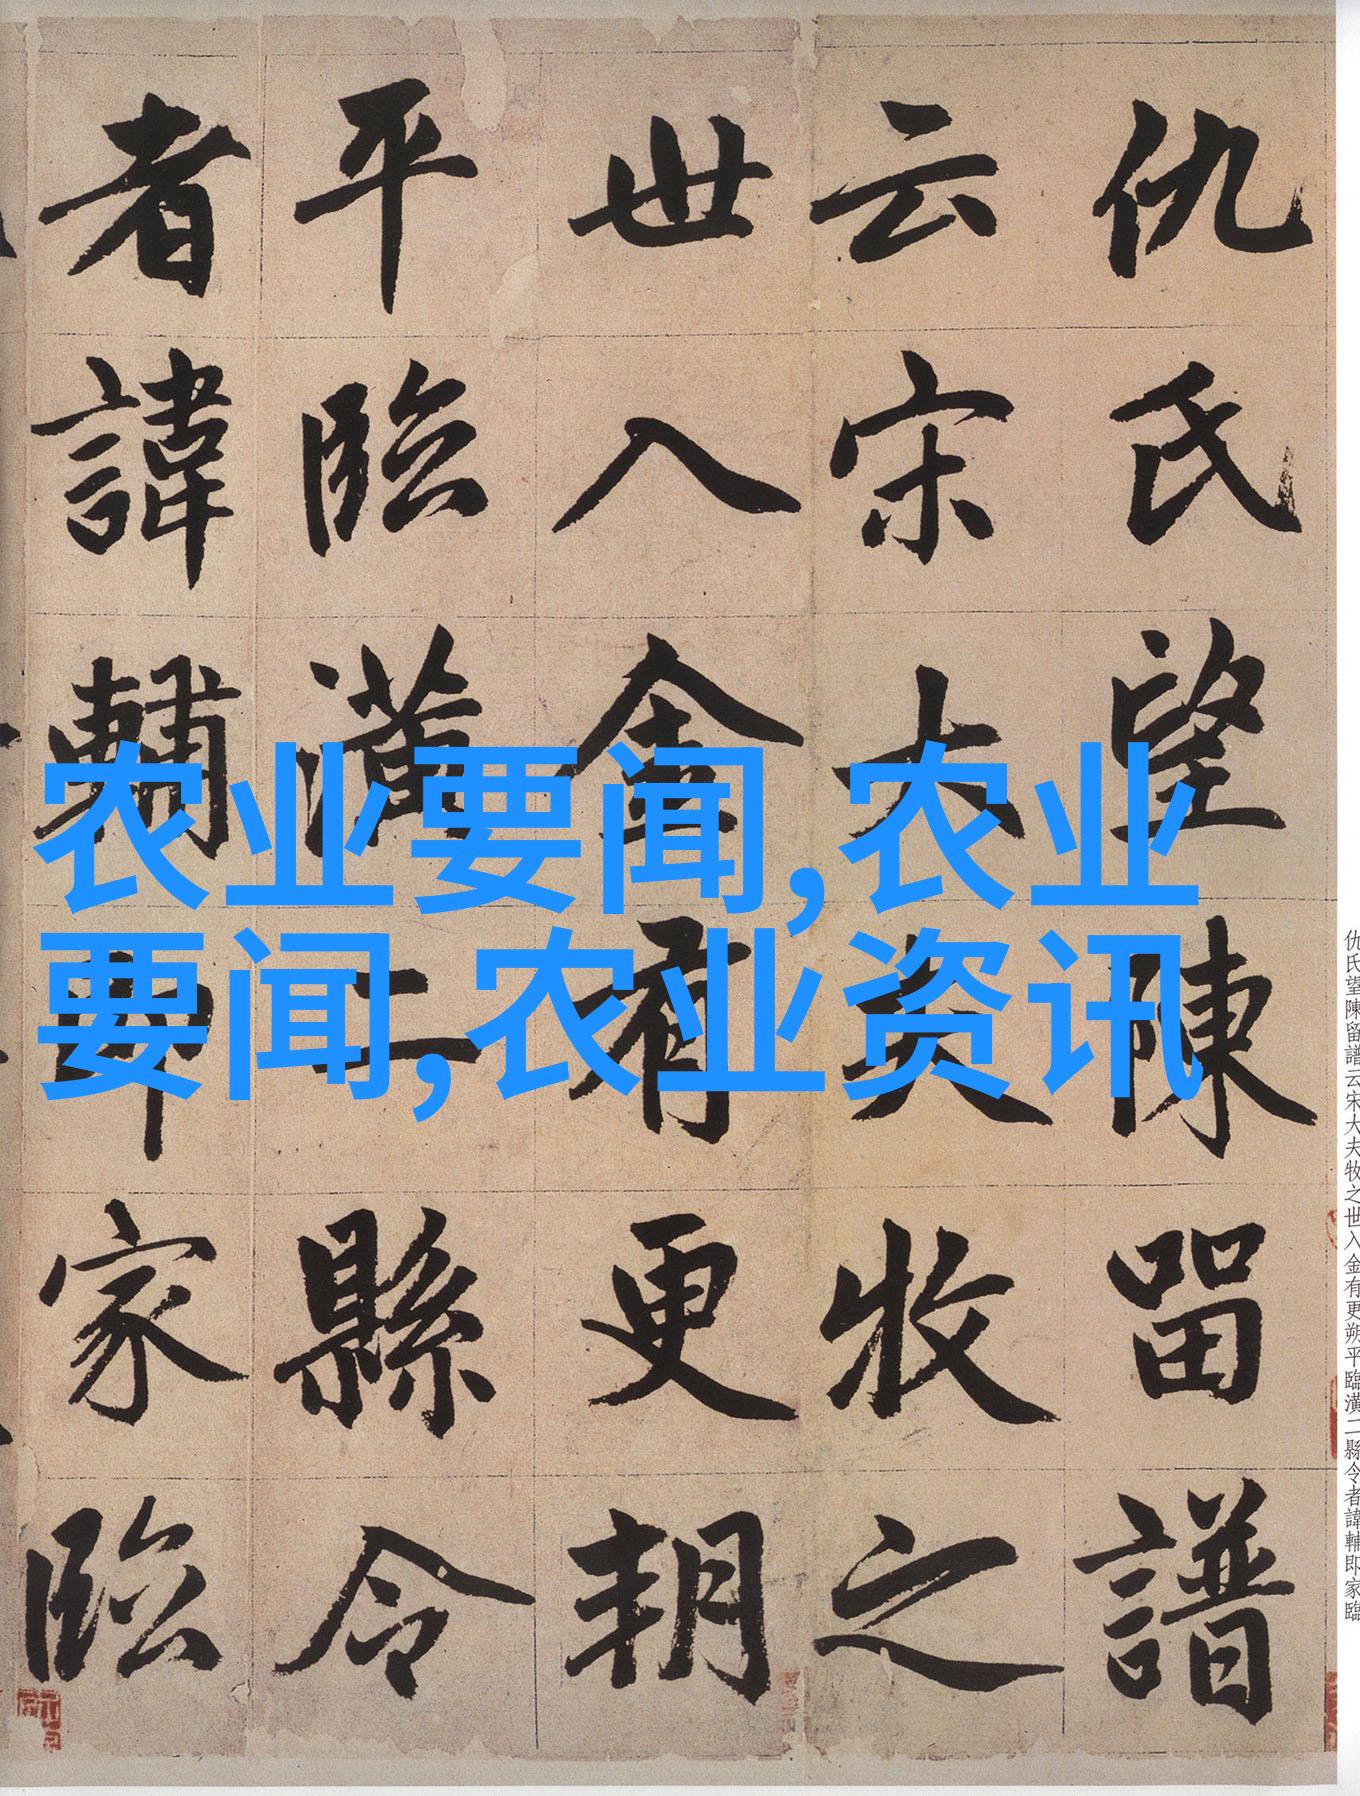 仇氏望陳留譜
云宋大夫牧之
世入金有更朔
平臨潢二縣令
者諱輔即家臨
农业要闻,农业
要闻,农业资讯
仇氏望陳留譜云宋大夫牧之世入金有更朔平臨潢二縣令者諱輔即家臨